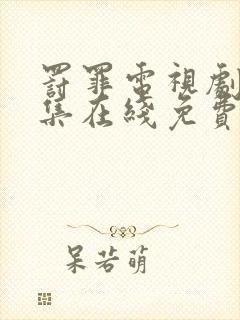 罰罪電視劇
集在綫免費
呆若萌